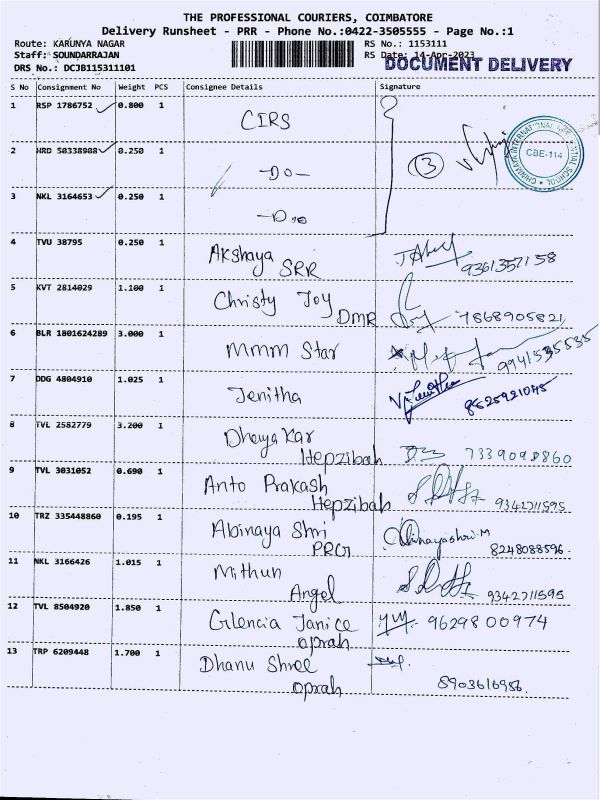 THE PROFESSIONAL COURIERS, COIMBATORE
Delivery Runsheet - PRR - Phone No.:0422-3505555 - Page No.:1
Route: KARUNYA NAGAR RS No.: 1153111
Staff: SOUNDARRAJAN RS Date: 14-Apr-2023
DOCUMENT DELIVERY
DRS No.: DCJB115311101
S No Consignment No Weight PCS Consignee Details Signature
1 RSP 1786752 0.800 1 CIRS
2 HRD 50338908 0.250 1 -Do- 3
CHINMAYA INTERNATIONAL RESIDENTIAL SCHOOL
CBE-114
3 NKL 3164653 0.250 1 -Do-
4 TVU 38795 0.250 1 Akshaya SRR 9361357158
5 KVT 2814029 1.100 1 Christy Joy DMR 7868905821
6 BLR 1801624289 3.000 1 Mmm Star 9941535535
7 DDG 4804910 1.025 1 Jenitha
8 TVL 2582779 3.200 1 Dhayakar Hepzibah 7339098860
9 TVL 3031052 0.690 1 Anto Prakash Hepzibah 9342711595
10 TRZ 335448860 0.195 1 Abinaya Shri PRG Abinayashri.M 8248088596
11 NKL 3166426 1.015 1 Mithun Angel 9342711595
12 TVL 8504920 1.850 1 Glencia Janice oprah 9629800974
13 TRP 6209448 1.700 1 Dhanu Shree oprah 8903616956